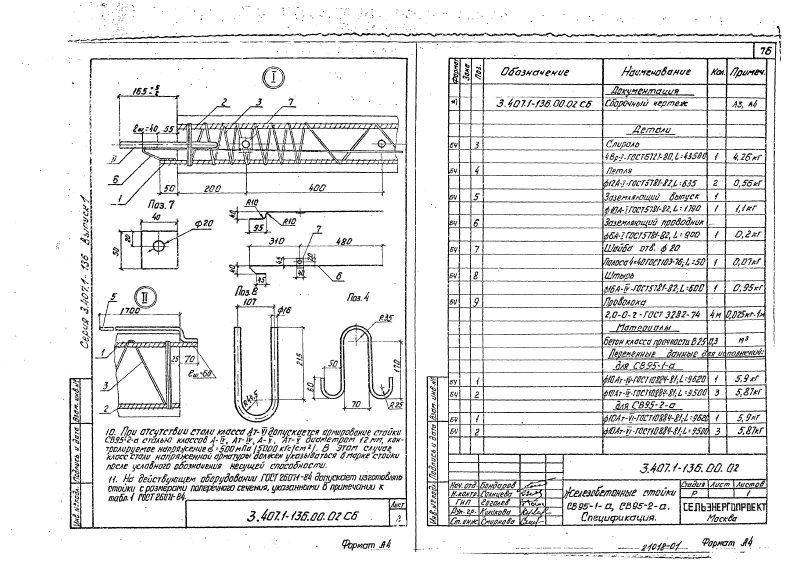 Серия 3.407.1-136 Выпуск 1
I
165
2 3 7
ℓш=40 55
8
6
1
50 200 400
Поз. 7
40
ф20
20
50
R10
40
R10
95
310 7 480
45
40
45
6
II
1700
5
1
25 70
ℓш=60
3
2
Поз. 8
107
ф16
215
Поз. 4
R35
50
60
170
70
R25
10. При отсутствии стали класса Ат-VI допускается армирование стойки
СВ95-2-а сталью классов А-IV, Ат-IV, А-V, Ат-V диаметром 12 мм, кон-
тролируемое напряжение б=500мПа (5000 кгс/см²). В этом случае
класс стали напрягаемой арматуры должен указываться в марке стойки
после условного обозначения несущей способности.
11. На действующем оборудовании ГОСТ 26071-84 допускает изготовлять
стойки с размерами поперечного сечения, указанными в примечании к
табл.1 ГОСТ 26071-84.
3.407.1-136.00.02 СБ
Лист
Формат А4
Инв.№ подл. Подпись и дата Взам. инв.№
76
Формат Зона Поз. Обозначение Наименование Кол. Примеч.
Документация
*) 3.407.1-136.00.02 СБ Сборочный чертеж А3, А4
Детали
БЧ 3 Спираль
4Вр-I-ГОСТ6727-80, L=43500 1 4,26кг
БЧ 4 Петля
ф12А-I-ГОСТ5781-82, L=635 2 0,56кг
БЧ 5 Заземляющий выпуск 1
ф10А-I ГОСТ5781-82, L=1790 1 1,1кг
БЧ 6 Заземляющий проводник
ф6А-I ГОСТ5781-82, L=900 1 0,2кг
БЧ 7 Шайба отв. ф 20
Полоса 4×40 ГОСТ103-76, L=50 1 0,07кг
БЧ 8 Штырь
ф16А-IV-ГОСТ5781-82, L=600 1 0,95кг
БЧ 9 Проволока
2,0-О-2-ГОСТ 3282-74 4м 0,025кг-1м
Материалы
бетон класса прочности В25 0,3 м³
Переменные данные для исполнений:
для СВ95-1-а
БЧ 1 ф10Ат-IV-ГОСТ10884-81, L=9620 1 5,9кг
БЧ 2 ф10Ат-IV-ГОСТ10884-81, L=9500 3 5,87кг
для СВ95-2-а
БЧ 1 ф10Ат-VI-ГОСТ10884-81, L=9620 1 5,9кг
БЧ 2 ф10Ат-VI-ГОСТ10884-81, L=9500 3 5,87кг
3.407.1-136.00.02
Нач.отд. Бондаров
Н.контр. Солнцева
ГИП
Рук.гр.
Ст.инж. Смирнова
Железобетонные стойки
СВ95-1-а, СВ95-2-а.
Спецификация.
Стадия Лист Листов
Р 1
СЕЛЬЭНЕРГОПРОЕКТ
Москва
Инв.№ подл. Подпись и дата Взам. инв.№
21018-01 Формат А4